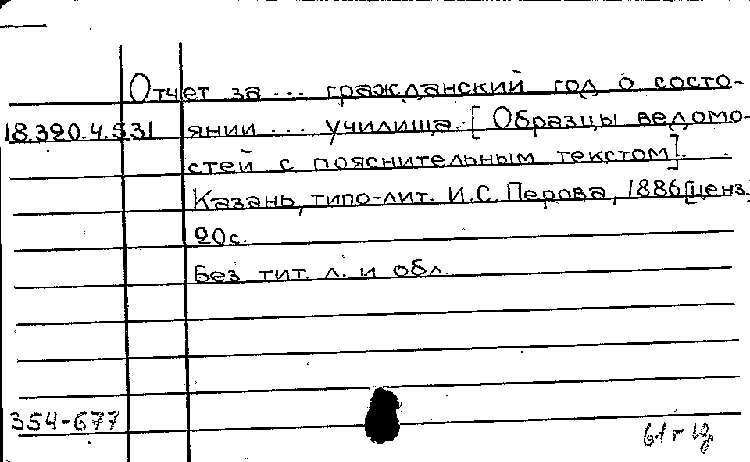 Отчет за ... гражданский год о состо-
18.320.4.531 янии ... училища. [Образцы ведомо-
стей с пояснительным текстом].
Казань, типо-лит. И.С. Перова, 1886 [ценз.]
20с.
Без тит. л. и обл.
354-677